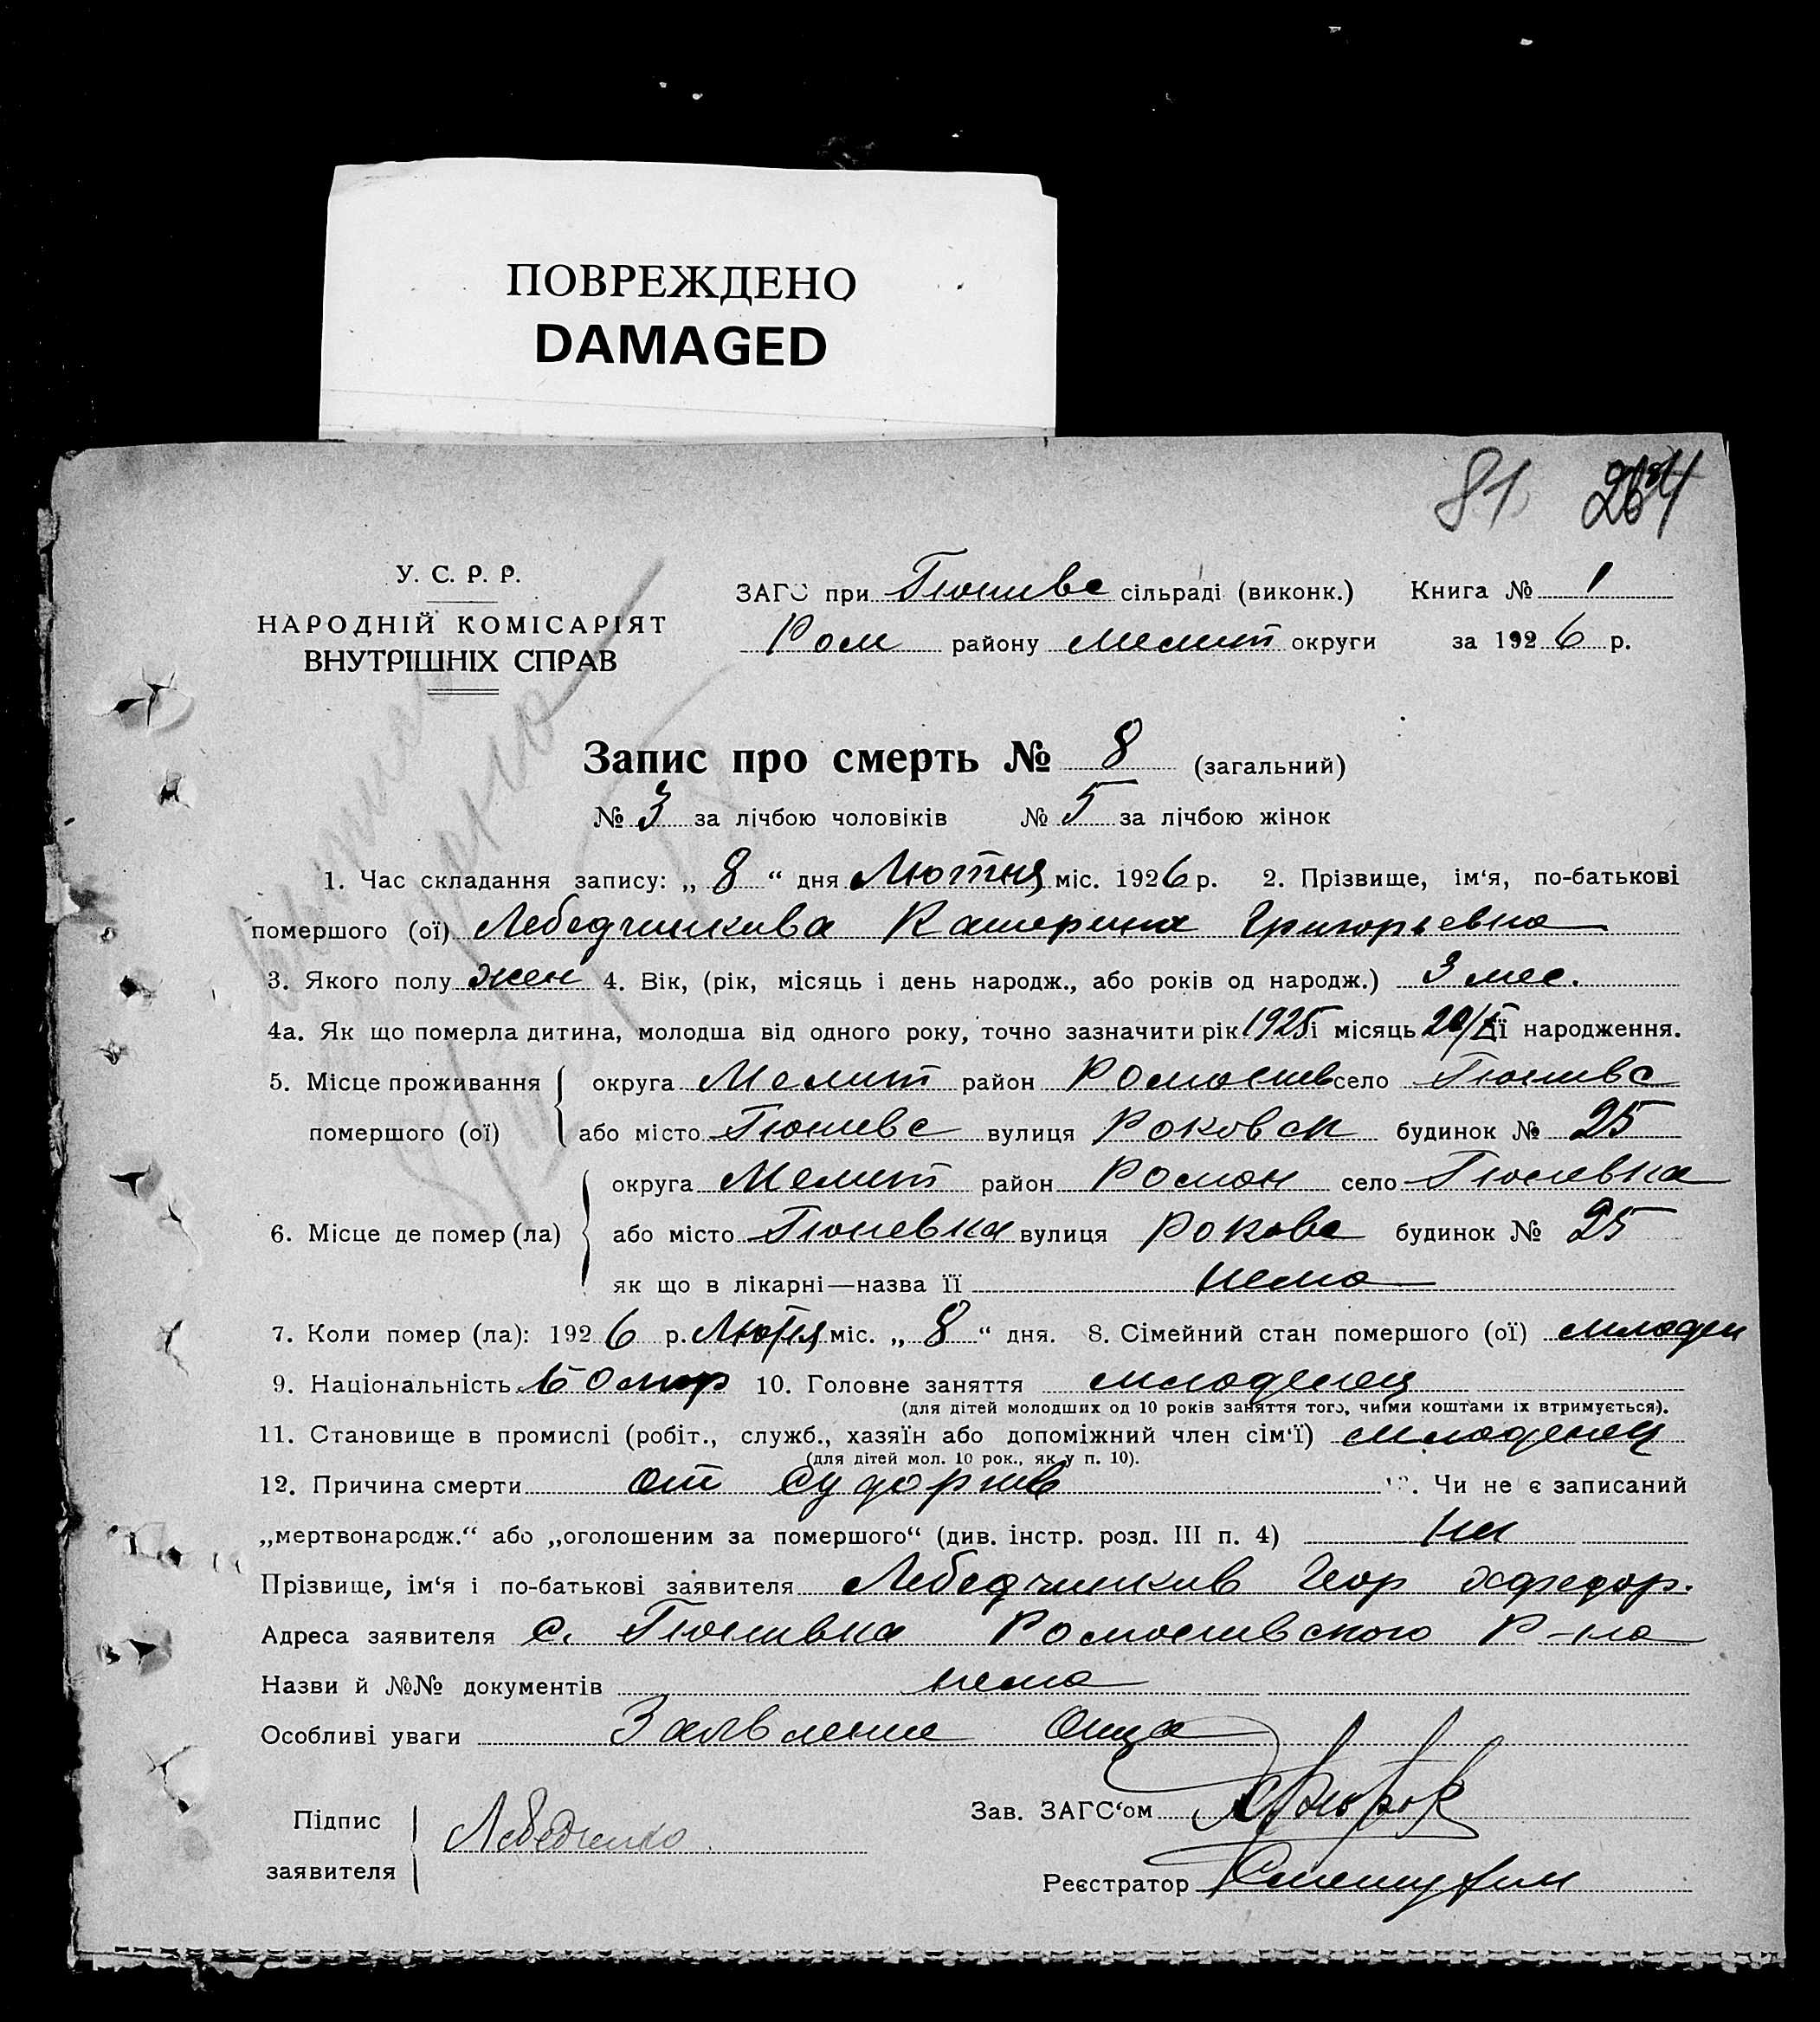 ПОВРЕЖДЕНО
DAMAGED
81
У. С. Р. Р.
НАРОДНІЙ КОМІСАРІЯТ
ВНУТРІШНІХ СПРАВ
ЗАГС при Гюнивс сільраді (виконк.) Книга № 1
Ром району Мелит округи за 1926 р.
Запис про смерть № 8 (загальний)
№ 3 за лічбою чоловіків № 5 за лічбою жінок
1. Час складання запису: „ 8 “ дня Лютня міс. 1926 р. 2. Прізвище, ім‘я, по-батькові
помершого (ої) Лебедчикива Катерина Григорьевна
3. Якого полу жен 4. Вік, (рік, місяць і день народж., або років од народж.) 3 мес.
4а. Як що померла дитина, молодша від одного року, точно зазначити рік 1925 і місяць її народження.
5. Місце проживання округа Мелит район Романив село Гюнивс
помершого (ої) або місто Гюневс вулиця Роковск будинок № 25
округа Мелит район Роман село Гюневка
6. Місце де помер (ла) або місто Гюневка вулиця Рокова будинок № 25
як що в лікарні—назва її нема
7. Коли помер (ла): 1926 р. Лютня міс. „ 8 “ дня. 8. Сімейний стан помершого (ої) младен
9. Національність Болгар 10. Головне заняття младенец
(для дітей молодших од 10 років заняття того, чиїми коштами їх втримується).
11. Становище в промислі (робіт., служб., хазяїн або допоміжний член сім‘ї) младенец
(для дітей мол. 10 рок., як у п. 10).
12. Причина смерти от судоргив 13. Чи не є записаний
„мертвонародж.“ або „оголошеним за помершого“ (див. інстр. розд. III п. 4) ни
Прізвище, ім‘я і по-батькові заявителя Лебедчикив Геор
Адреса заявителя с. Гюнивка Романивского Р-на
Назви й №№ документів нема
Особливі уваги Заявление Отца
Зав. ЗАГС‘ом
Підпис
заявителя
Реєстратор